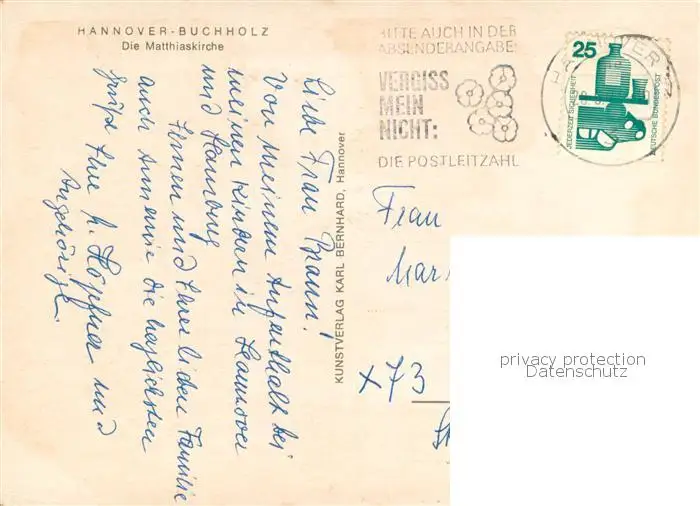 HANNOVER-BUCHHOLZ
Die Matthiaskirche
BITTE AUCH IN DER
ABSENDERANGABE:
VERGISS
MEIN
NICHT:
DIE POSTLEITZAHL
HANNOVER
25
JEDERZEIT SICHERHEIT
DEUTSCHE BUNDESPOST
Liebe Frau Braun!
Von meinem Aufenthalt bei
meinen Kindern in Hannover
und Hamburg
Ihnen und Ihrer lieben Familie
auch Annemie die herzlichsten
Grüße Ihre h. Höpfner und
Angehörige.
KUNSTVERLAG KARL BERNHARD, Hannover
Frau
Mar
x73
privacy protection
Datenschutz